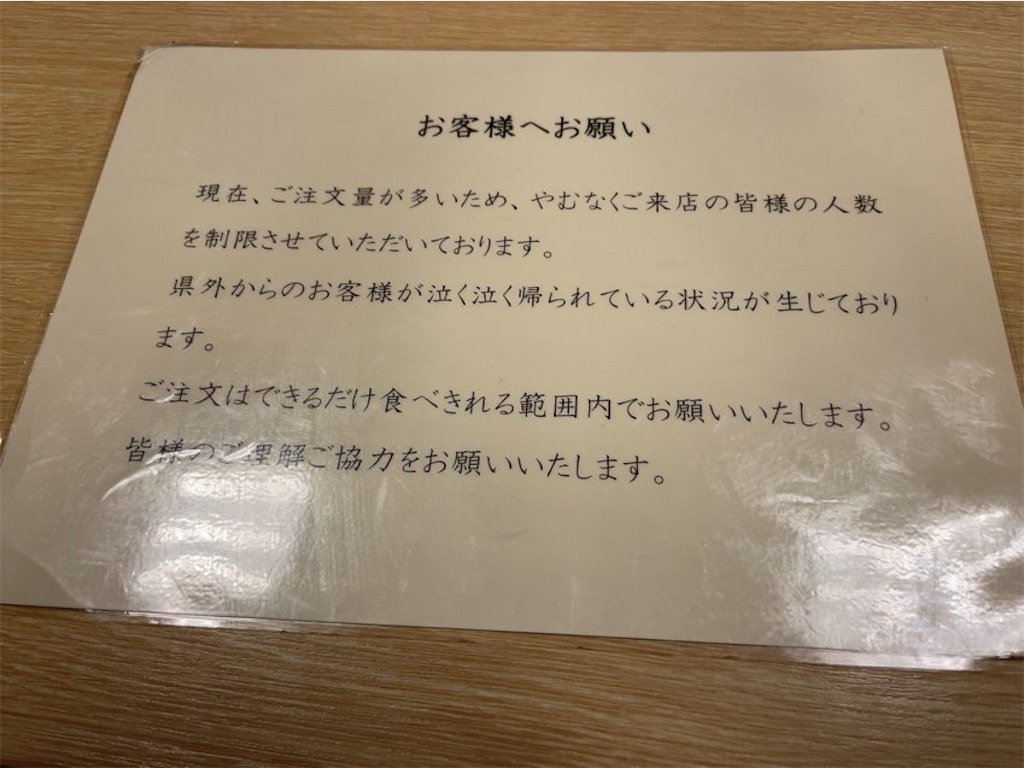 お客様へお願い
現在、ご注文量が多いため、やむなくご来店の皆様の人数
を制限させていただいております。
県外からのお客様が泣く泣く帰られている状況が生じており
ます。
ご注文はできるだけ食べきれる範囲内でお願いいたします。
皆様のご理解ご協力をお願いいたします。